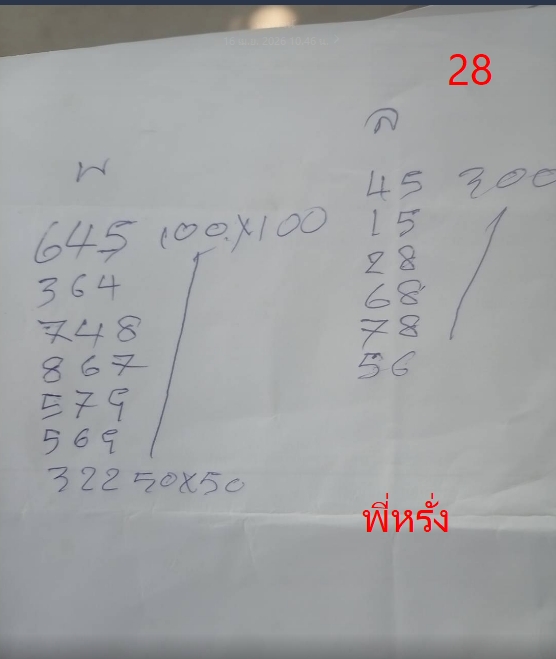 28
บ
645 100x100
364
748
867
579
569
322 50x50
ล
45 200
15
28
68
78
56
พี่หรั่ง